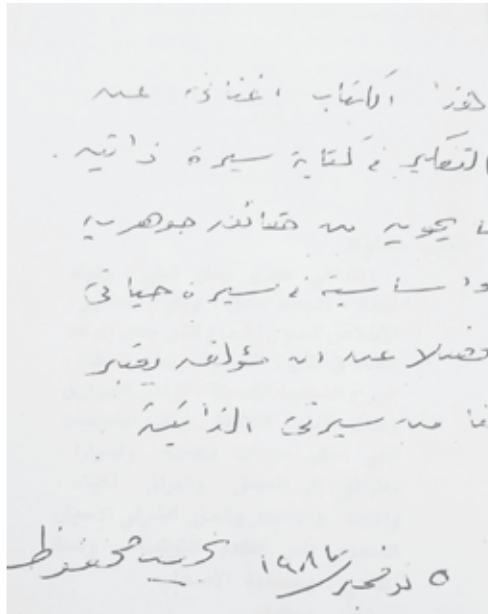 هذا الكتاب أغناني عن
التفكير في كتابة سيرة ذاتية .
يحويه من حقائق جوهرية
أساسية في سيرة حياتي
فضلا عن ان مؤلفه يعتبر
من سيرتي الذاتية
نجيب محفوظ
٥ نوفمبر